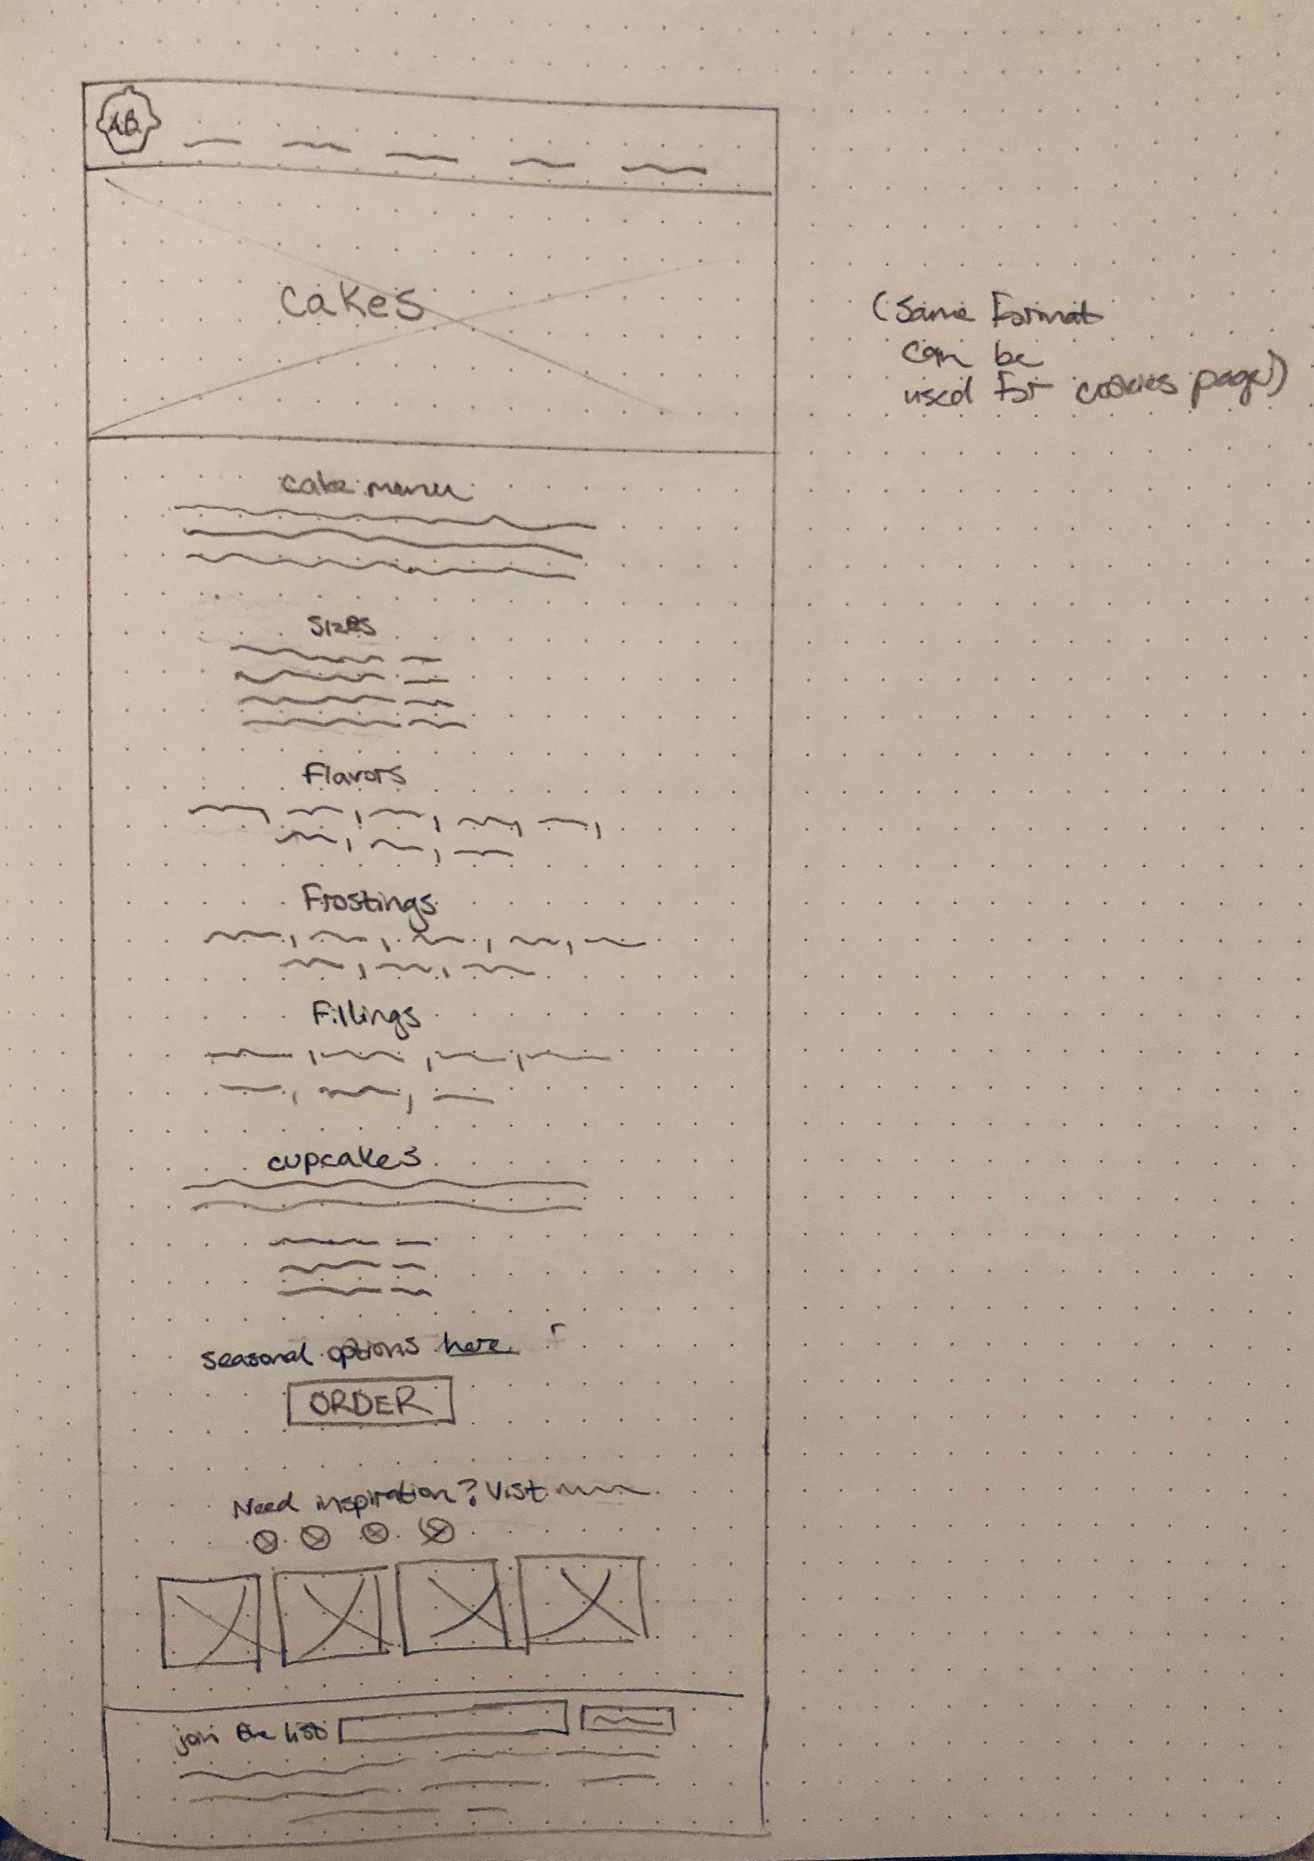 AB
cakes
(same format
can be
used for cookies page)
cake menu
sizes
Flavors
Frostings
Fillings
cupcakes
seasonal options here.
ORDER
Need inspiration? Vist
join the list